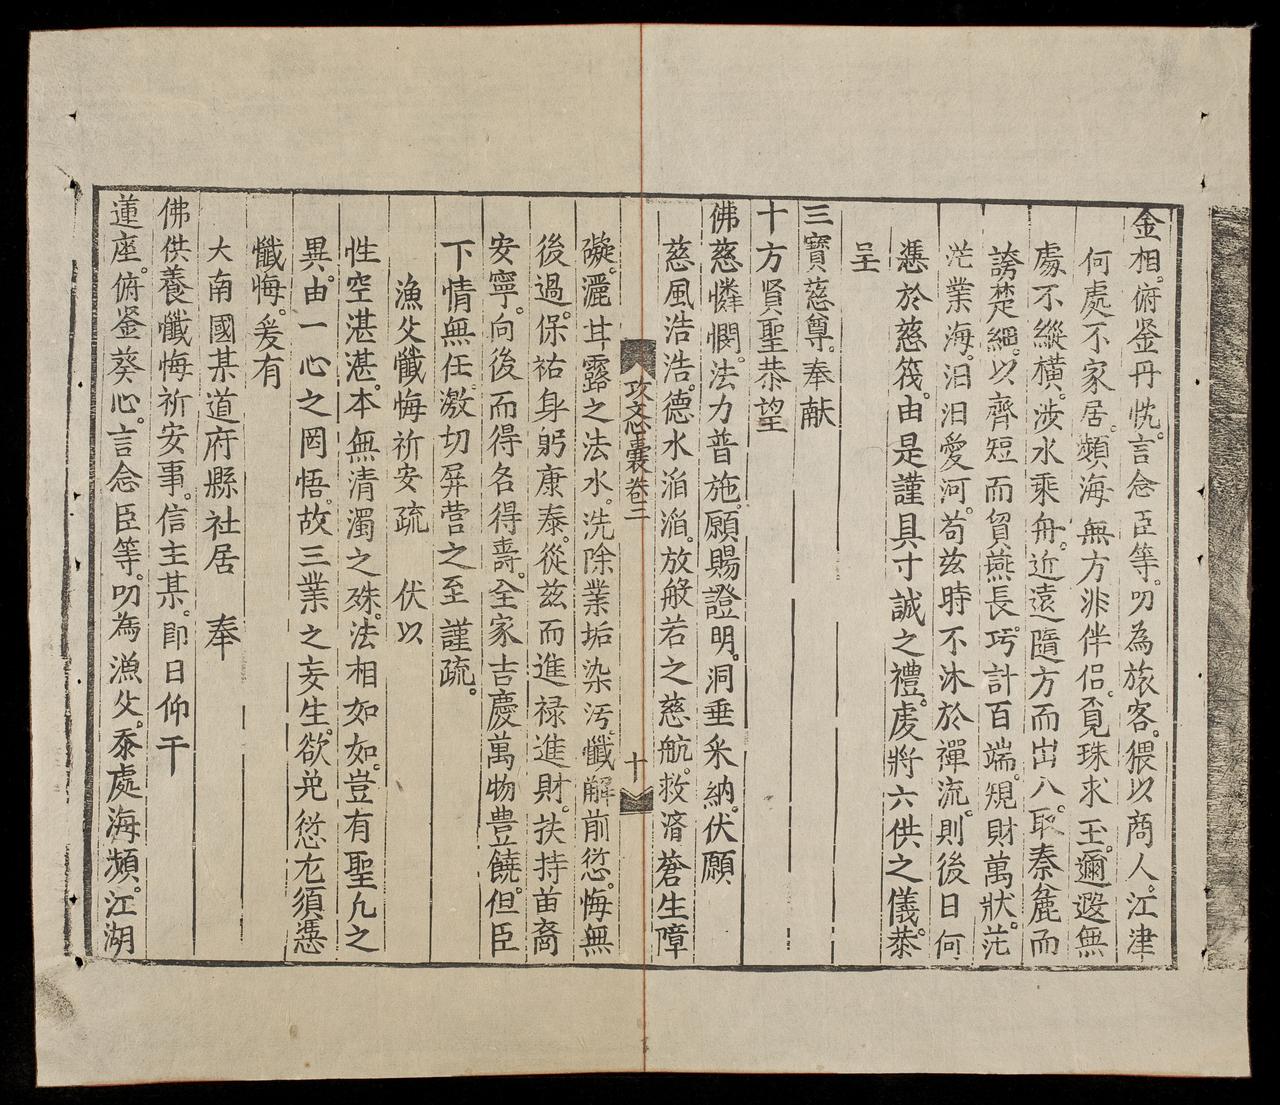 金相。俯鉴丹忱。言念臣等。叨為旅客。猥以商人。江津
何處不家居。頻海無方非伴侣。覔珠求玉。邇遐無
處不縱横。涉水乘舟。近遠隨方而出入。取秦麄而
誇楚細。以齊短而貿燕長。巧計百端。規財萬狀。茫
茫業海。汨汨愛河。苟兹時不沐於禪流。則後日何
憑於慈筏。由是謹具寸誠之禮。虔將六供之儀。恭
呈
三寶慈尊。奉献
十方賢聖恭望
佛慈憐憫。法力普施。願賜證明。洞垂采納。伏願
慈風浩浩。德水滔滔。放般若之慈航。救濟蒼生障
攻文心囊卷二
十
礙。灑甘露之法水。洗除業垢染汚。懺解前愆。悔無
後過。保祐身躬康泰。從兹而進禄進財。扶持苗裔
安寧。向後而得各得壽。全家吉慶萬物豊饒。但臣
下情無任激切屏营之至謹疏。
漁父懺悔祈安疏 伏以
性空湛湛。本無清濁之殊。法相如如。豈有聖凡之
異。由一心之罔悟。故三業之妄生。欲免愆尤須憑
懺悔。爰有
大南國某道府縣社居 奉
佛供養懺悔祈安事。信主某。即日仰干
蓮座。俯鉴葵心。言念臣等。叨為漁父。忝處海頻。江湖